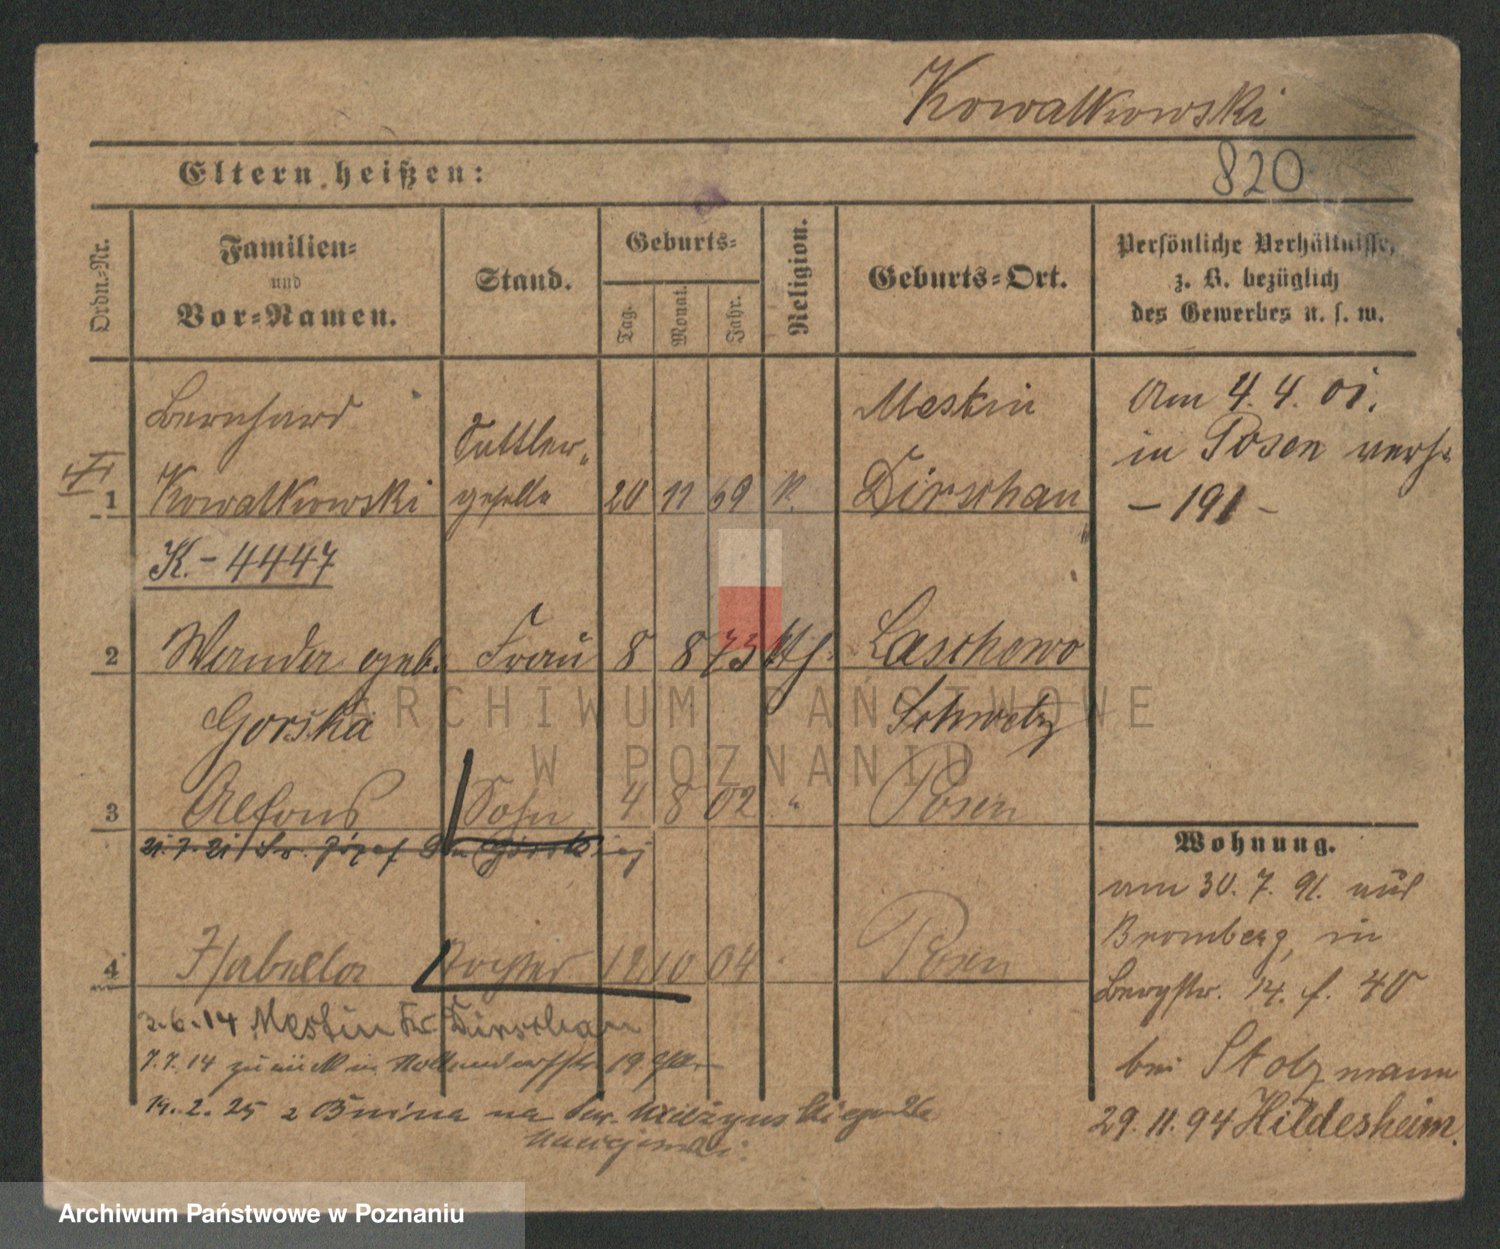 Kowalkowski
820
Eltern heißen:
Ordn.-Nr.
Familien- und Vor-Namen.
Stand.
Geburts-
Tag.
Monat.
Jahr.
Religion.
Geburts-Ort.
Persönliche Verhältnisse, z. B. bezüglich des Gewerbes u. s. w.
Bernhard
Kowalkowski
Sattler„
geselle
1
20 11 69 k.
Mestin
Dirschau
Am 4. 4. 01.
in Posen verh.
– 191 –
K. – 4447
2
Wanda geb.
Gorska
Frau
8 8 73 kth.
Laschewo
Schwetz
3
Alfons
Sohn
4 8 02 "
Posen
21.7.21 Św. Józef
Wohnung.
am 30. 7. 91. aus
Bromberg, in
Bergstr. 14. f. 40
bei Stolzmann
29. 11. 94 Hildesheim.
4
Isabella
Tochter
12 10 04
Posen
3.6.14 Mestin Kr. Dirschau
7.7.14 zurück in 19
14.2.25 z Bnina na Św.
ARCHIWUM PAŃSTWOWE
W POZNANIU
Archiwum Państwowe w Poznaniu